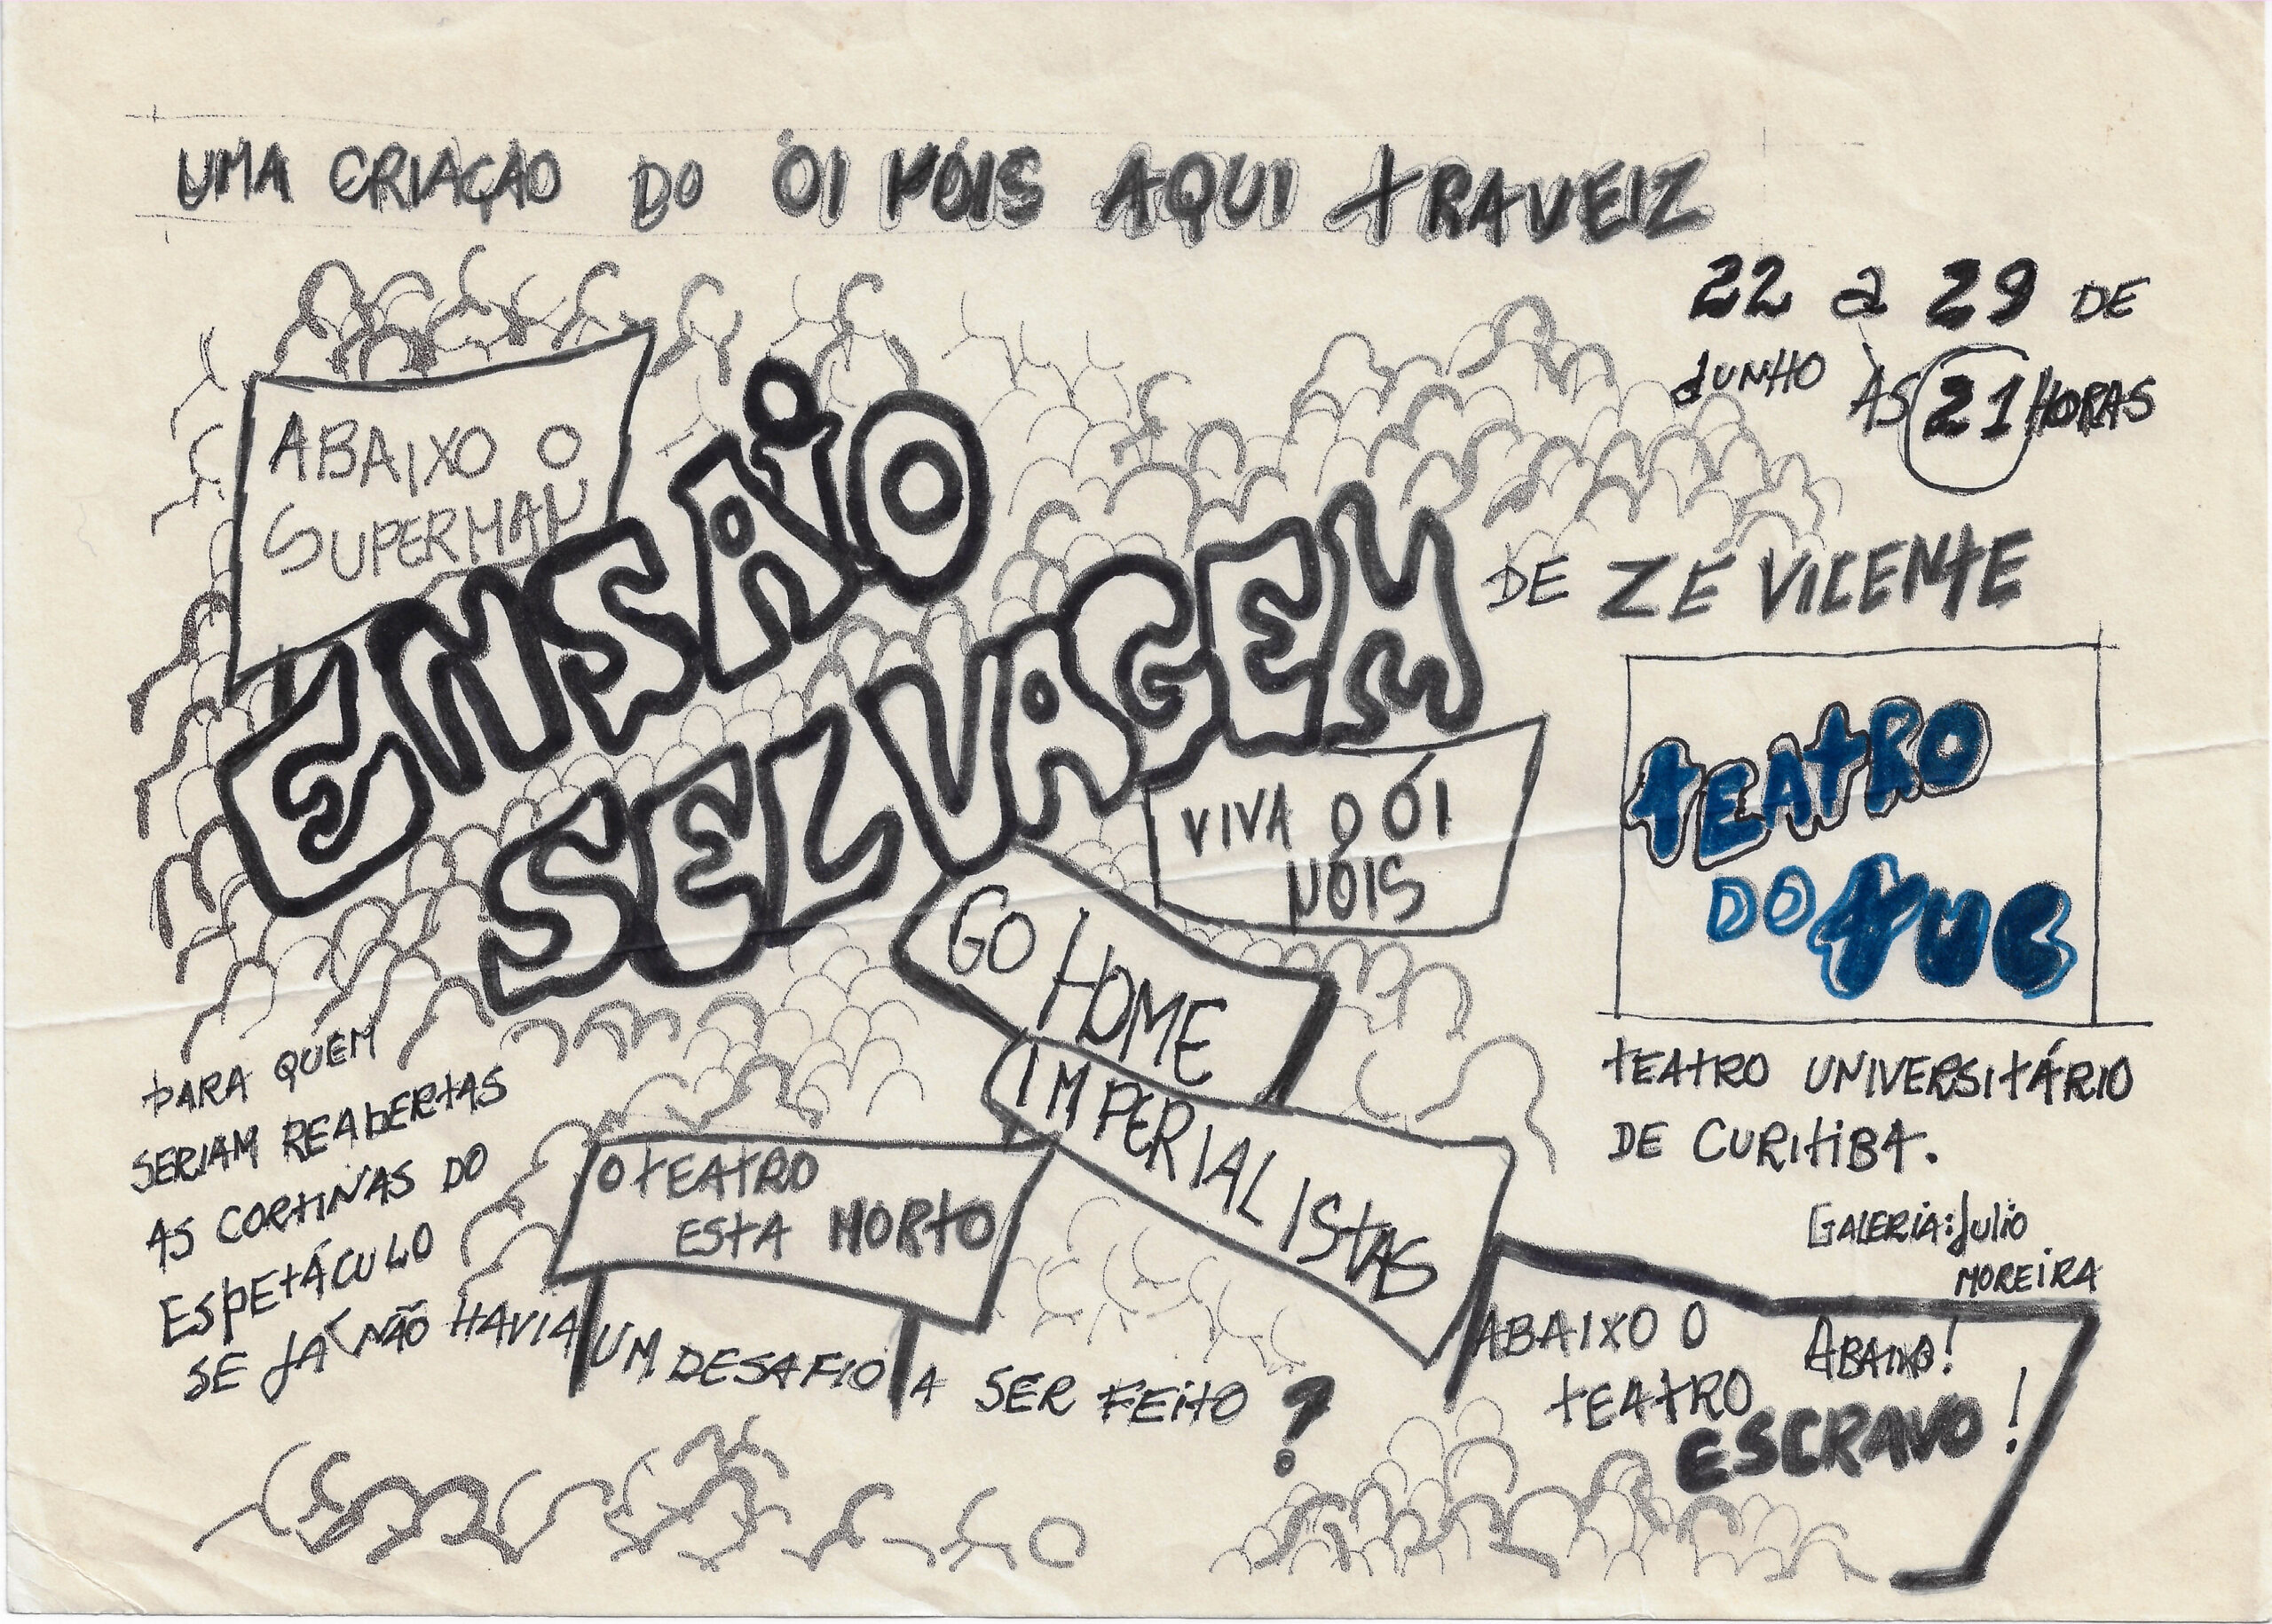 UMA CRIAÇÃO DO ÓI NÓIS AQUI TRAVEIZ
22 a 29 DE
JUNHO ÀS 21 HORAS
ABAIXO O
SUPERMAN
ENSAIO
SELVAGEM
DE ZÉ VICENTE
VIVA O ÓI
NÓIS
TEATRO
DO TUC
GO HOME
IMPERIALISTAS
TEATRO UNIVERSITÁRIO
DE CURITIBA.
GALERIA: Julio
MOREIRA
PARA QUEM
SERIAM REABERTAS
AS CORTINAS DO
ESPETÁCULO
SE JÁ NÃO HAVIA UM DESAFIO A SER FEITO ?
O TEATRO
ESTA MORTO
ABAIXO O
TEATRO
ESCRAVO !
ABAIXO!